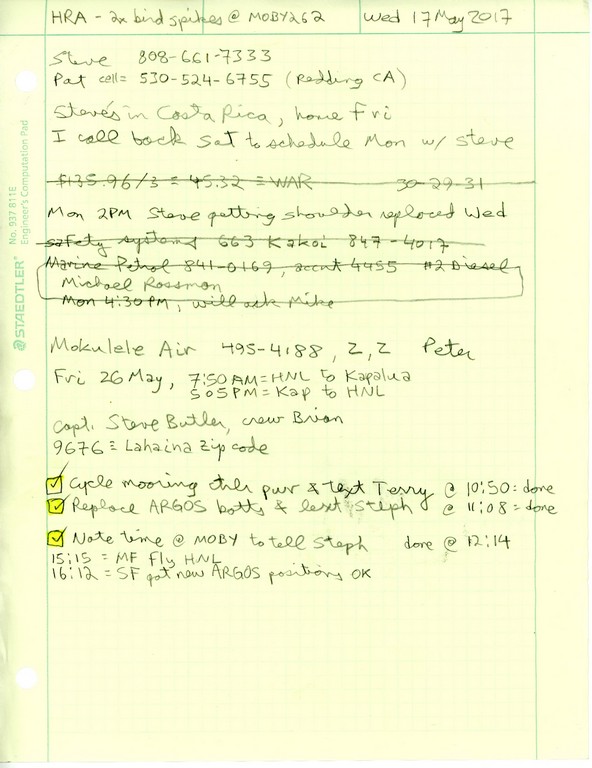 HRA - 2x bird spikes @ MOBY262
Wed 17 May 2017
Steve 808-661-7333
Pat cell= 530-524-6755 (Redding CA)
Steve's in Costa Rica, home Fri
I call back Sat to schedule Mon w/ Steve
$135.96/3 = 45.32 = WAR 30-29-31
Mon 2PM Steve getting shoulder replaced Wed
safety systems 663 Kakoi 847-4017
Marine Petrol 841-0169, accnt 4455 #2 Diesel
Michael Rossman
Mon 4:30 PM, will ask Mike
Mokulele Air 495-4188, 2, 2 Peter
Fri 26 May, 7:50 AM = HNL to Kapalua
5:05 PM = Kap to HNL
Capt. Steve Butler, crew Brian
9676 = Lahaina zip code
Cycle mooring cntlr pwr & text Terry @ 10:50 = done
Replace ARGOS batts & text Steph @ 11:08 = done
Note time @ MOBY to tell Steph done @ 12:14
15:15 = MF fly HNL
16:12 = SF got new ARGOS positions OK
STAEDTLER
No. 937 811E
Engineer's Computation Pad